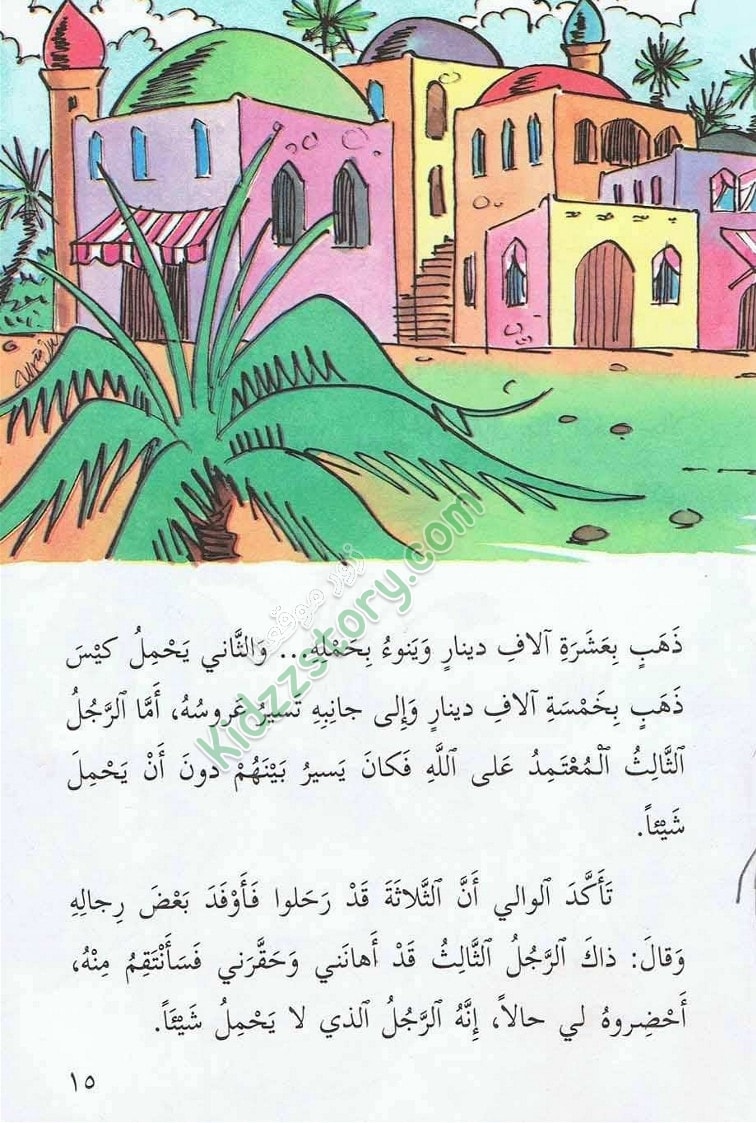 ذَهَبٍ بِعَشَرَةِ آلافِ دينارٍ وَيَنوءُ بِحَمْلِهِ... وَالثَّاني يَحْمِلُ كيْسَ
ذَهَبٍ بِخَمْسَةِ آلافِ دينارٍ وَإِلى جانِبِهِ تَسيرُ عَروسُهُ، أَمَّا ٱلرَّجُلُ
ٱلثَّالِثُ ٱلْمُعْتَمِدُ عَلى ٱللَّهِ فَكانَ يَسيرُ بَيْنَهُمْ دونَ أَنْ يَحْمِلَ
شَيْئاً.
تَأَكَّدَ ٱلوالي أَنَّ ٱلثَّلاثَةَ قَدْ رَحَلوا فَأَوْفَدَ بَعْضَ رِجالِهِ
وَقالَ: ذاكَ ٱلرَّجُلُ ٱلثَّالِثُ قَدْ أَهانَني وَحَقَّرَني فَسَأَنْتَقِمُ مِنْهُ،
أَحْضِروهُ لي حالاً، إِنَّهُ ٱلرَّجُلُ ٱلذي لا يَحْمِلُ شَيْئاً.
١٥
زوروا موقعنا
Kidzzstory.com